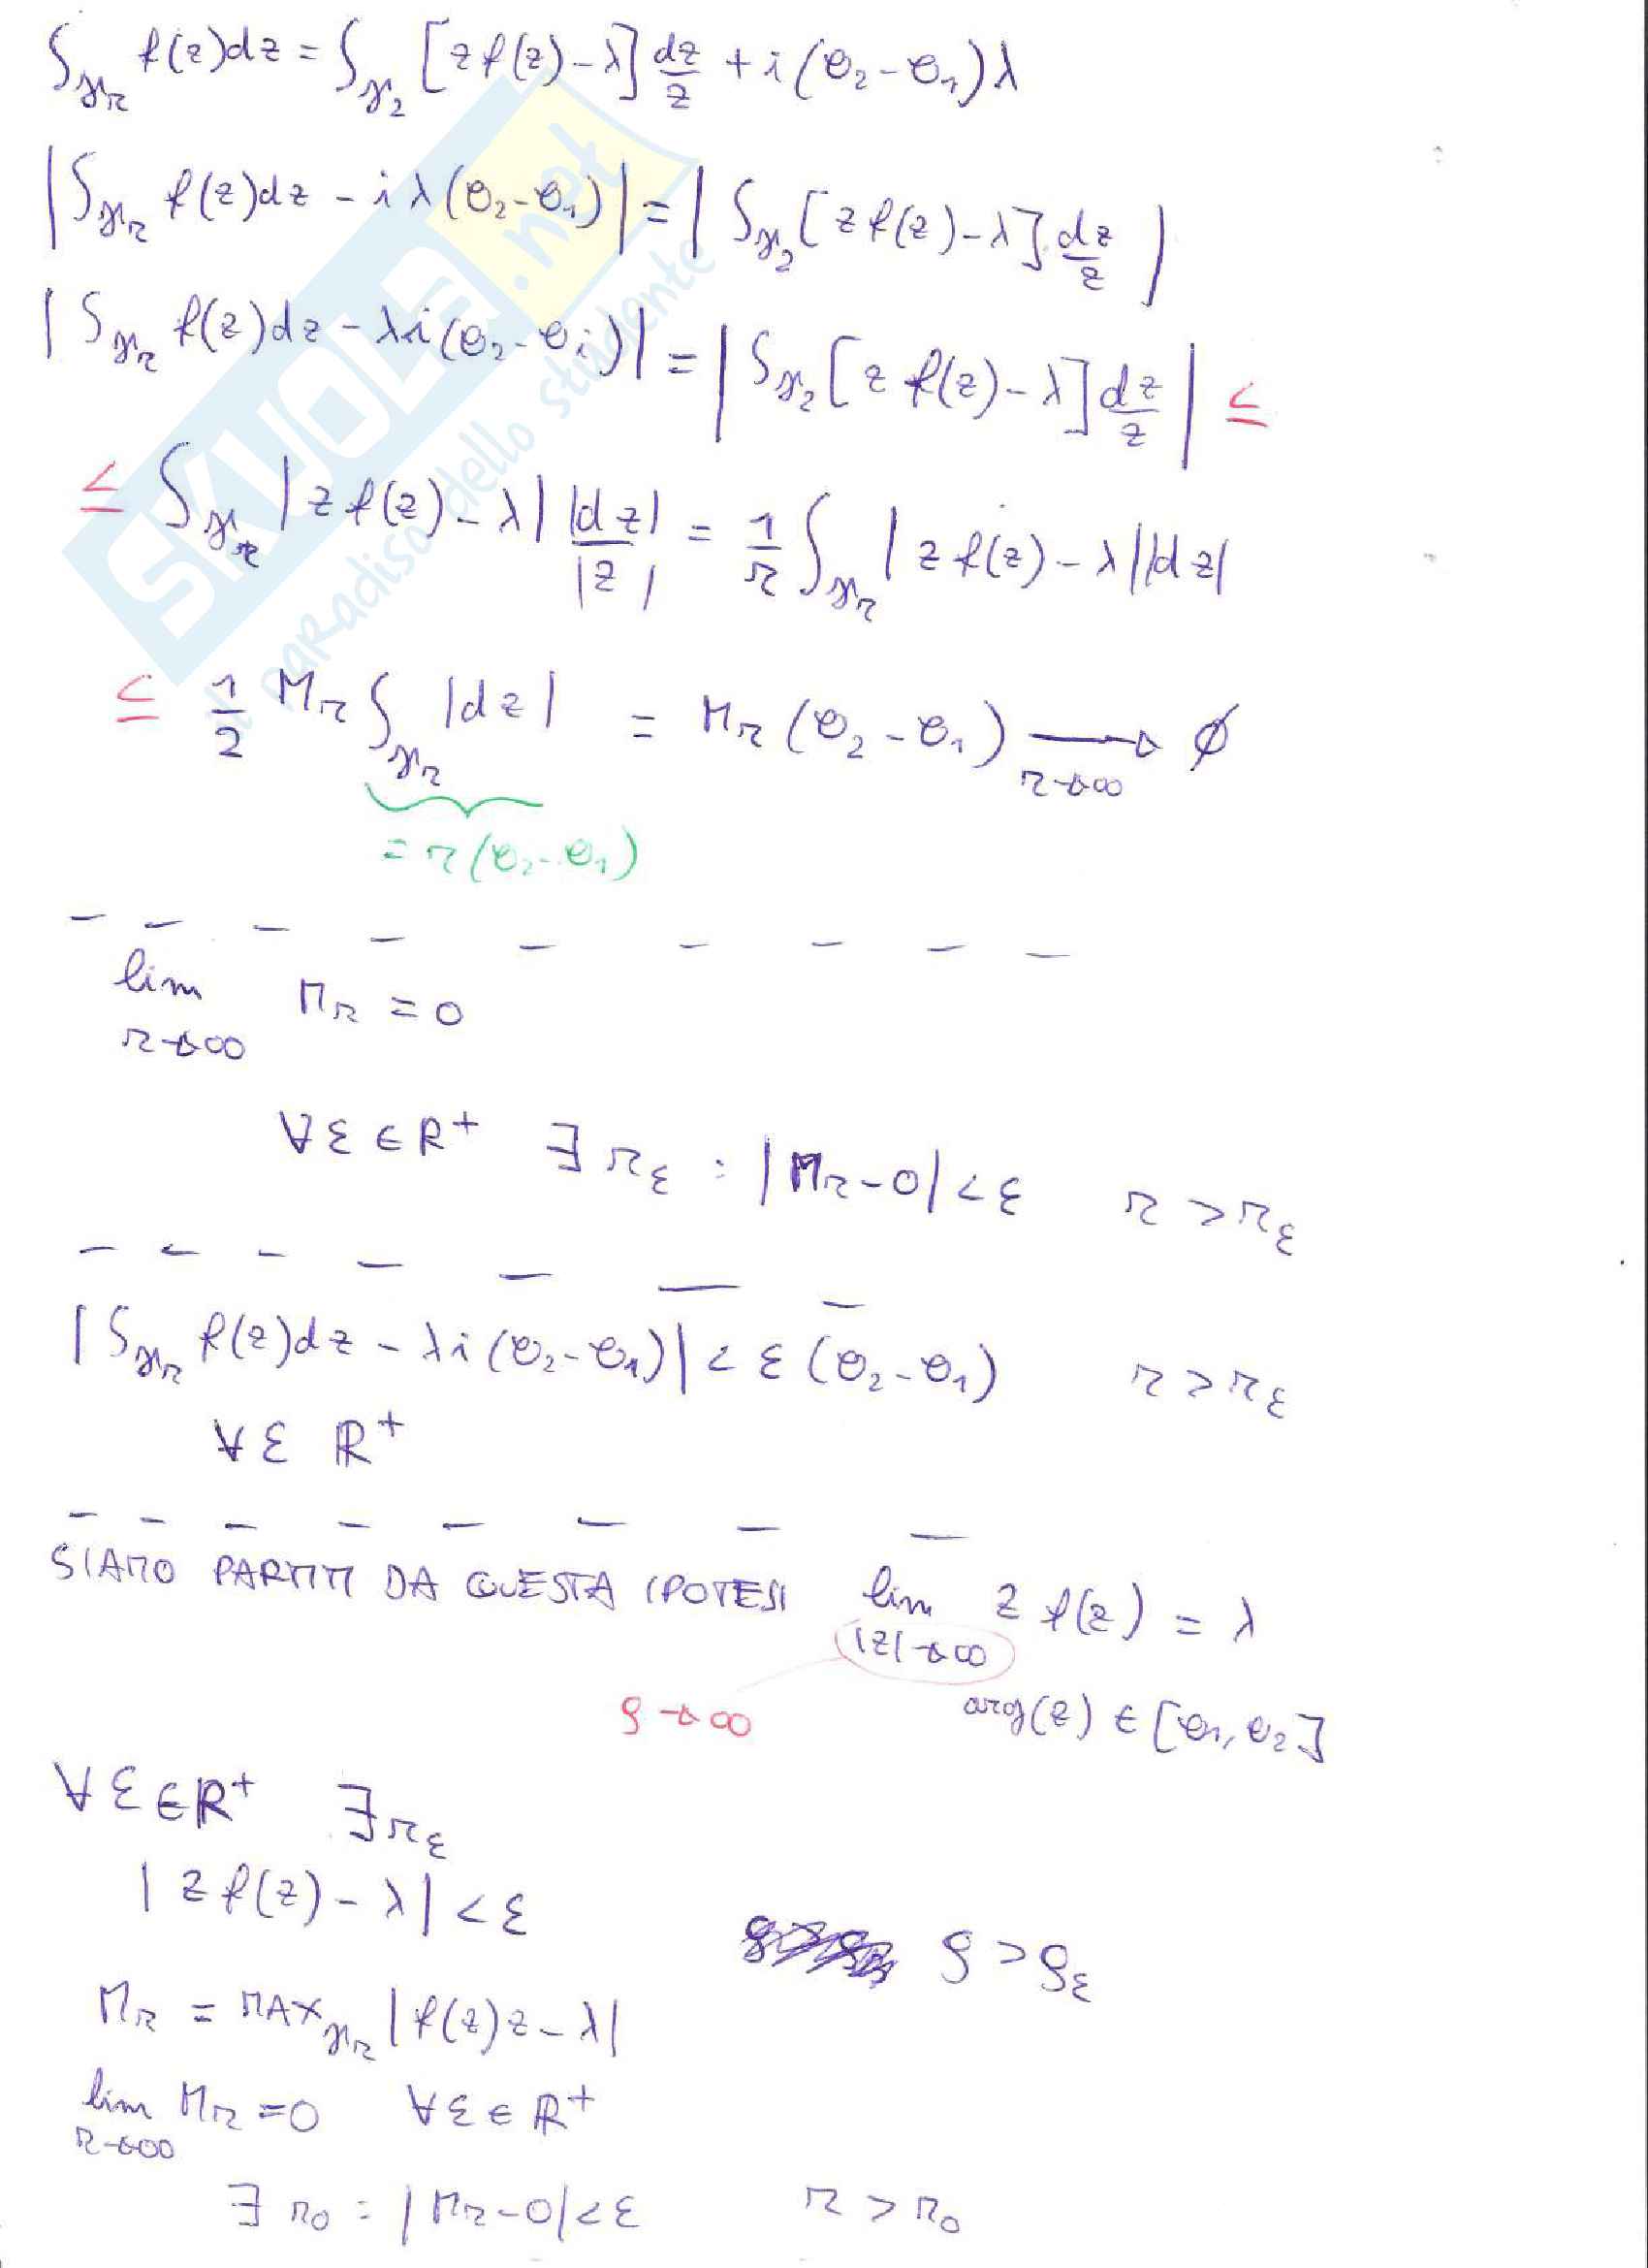 ∫_γr f(z)dz = ∫_γ2 [z f(z) - λ] dz/z + i(θ2 - θ1)λ
|∫_γr f(z)dz - iλ(θ2-θ1)| = |∫_γ2 [z f(z) - λ] dz/z|
|∫_γr f(z)dz - λi(θ2-θi)| = |∫_γ2 [z f(z) - λ] dz/z| ≤
≤ ∫_γr |z f(z) - λ| |dz|/|z| = 1/r ∫_γr |z f(z) - λ||dz|
≤ 1/2 Mr ∫_γr |dz| = Mr (θ2 - θ1) → ∅
r→∞
= r(θ2-θ1)
lim Mr = 0
r→∞
∀ε ∈ R+ ∃ rε : |Mr - 0| < ε r > rε
|∫_γr f(z)dz - λi(θ2-θ1)| < ε(θ2-θ1) r > rε
∀ε R+
SIAMO PARTITI DA QUESTA IPOTESI lim z f(z) = λ
|z|→∞
ρ→∞ arg(z) ∈ [θ1, θ2]
∀ε ∈ R+ ∃ rε
|z f(z) - λ| < ε
ρ > ρε
Mr = MAX_γr |f(z)z - λ|
lim Mr = 0 ∀ε ∈ R+
r→∞
∃ r0 : |Mr - 0| < ε r > r0
SKUOLA.net
il paradiso dello studente